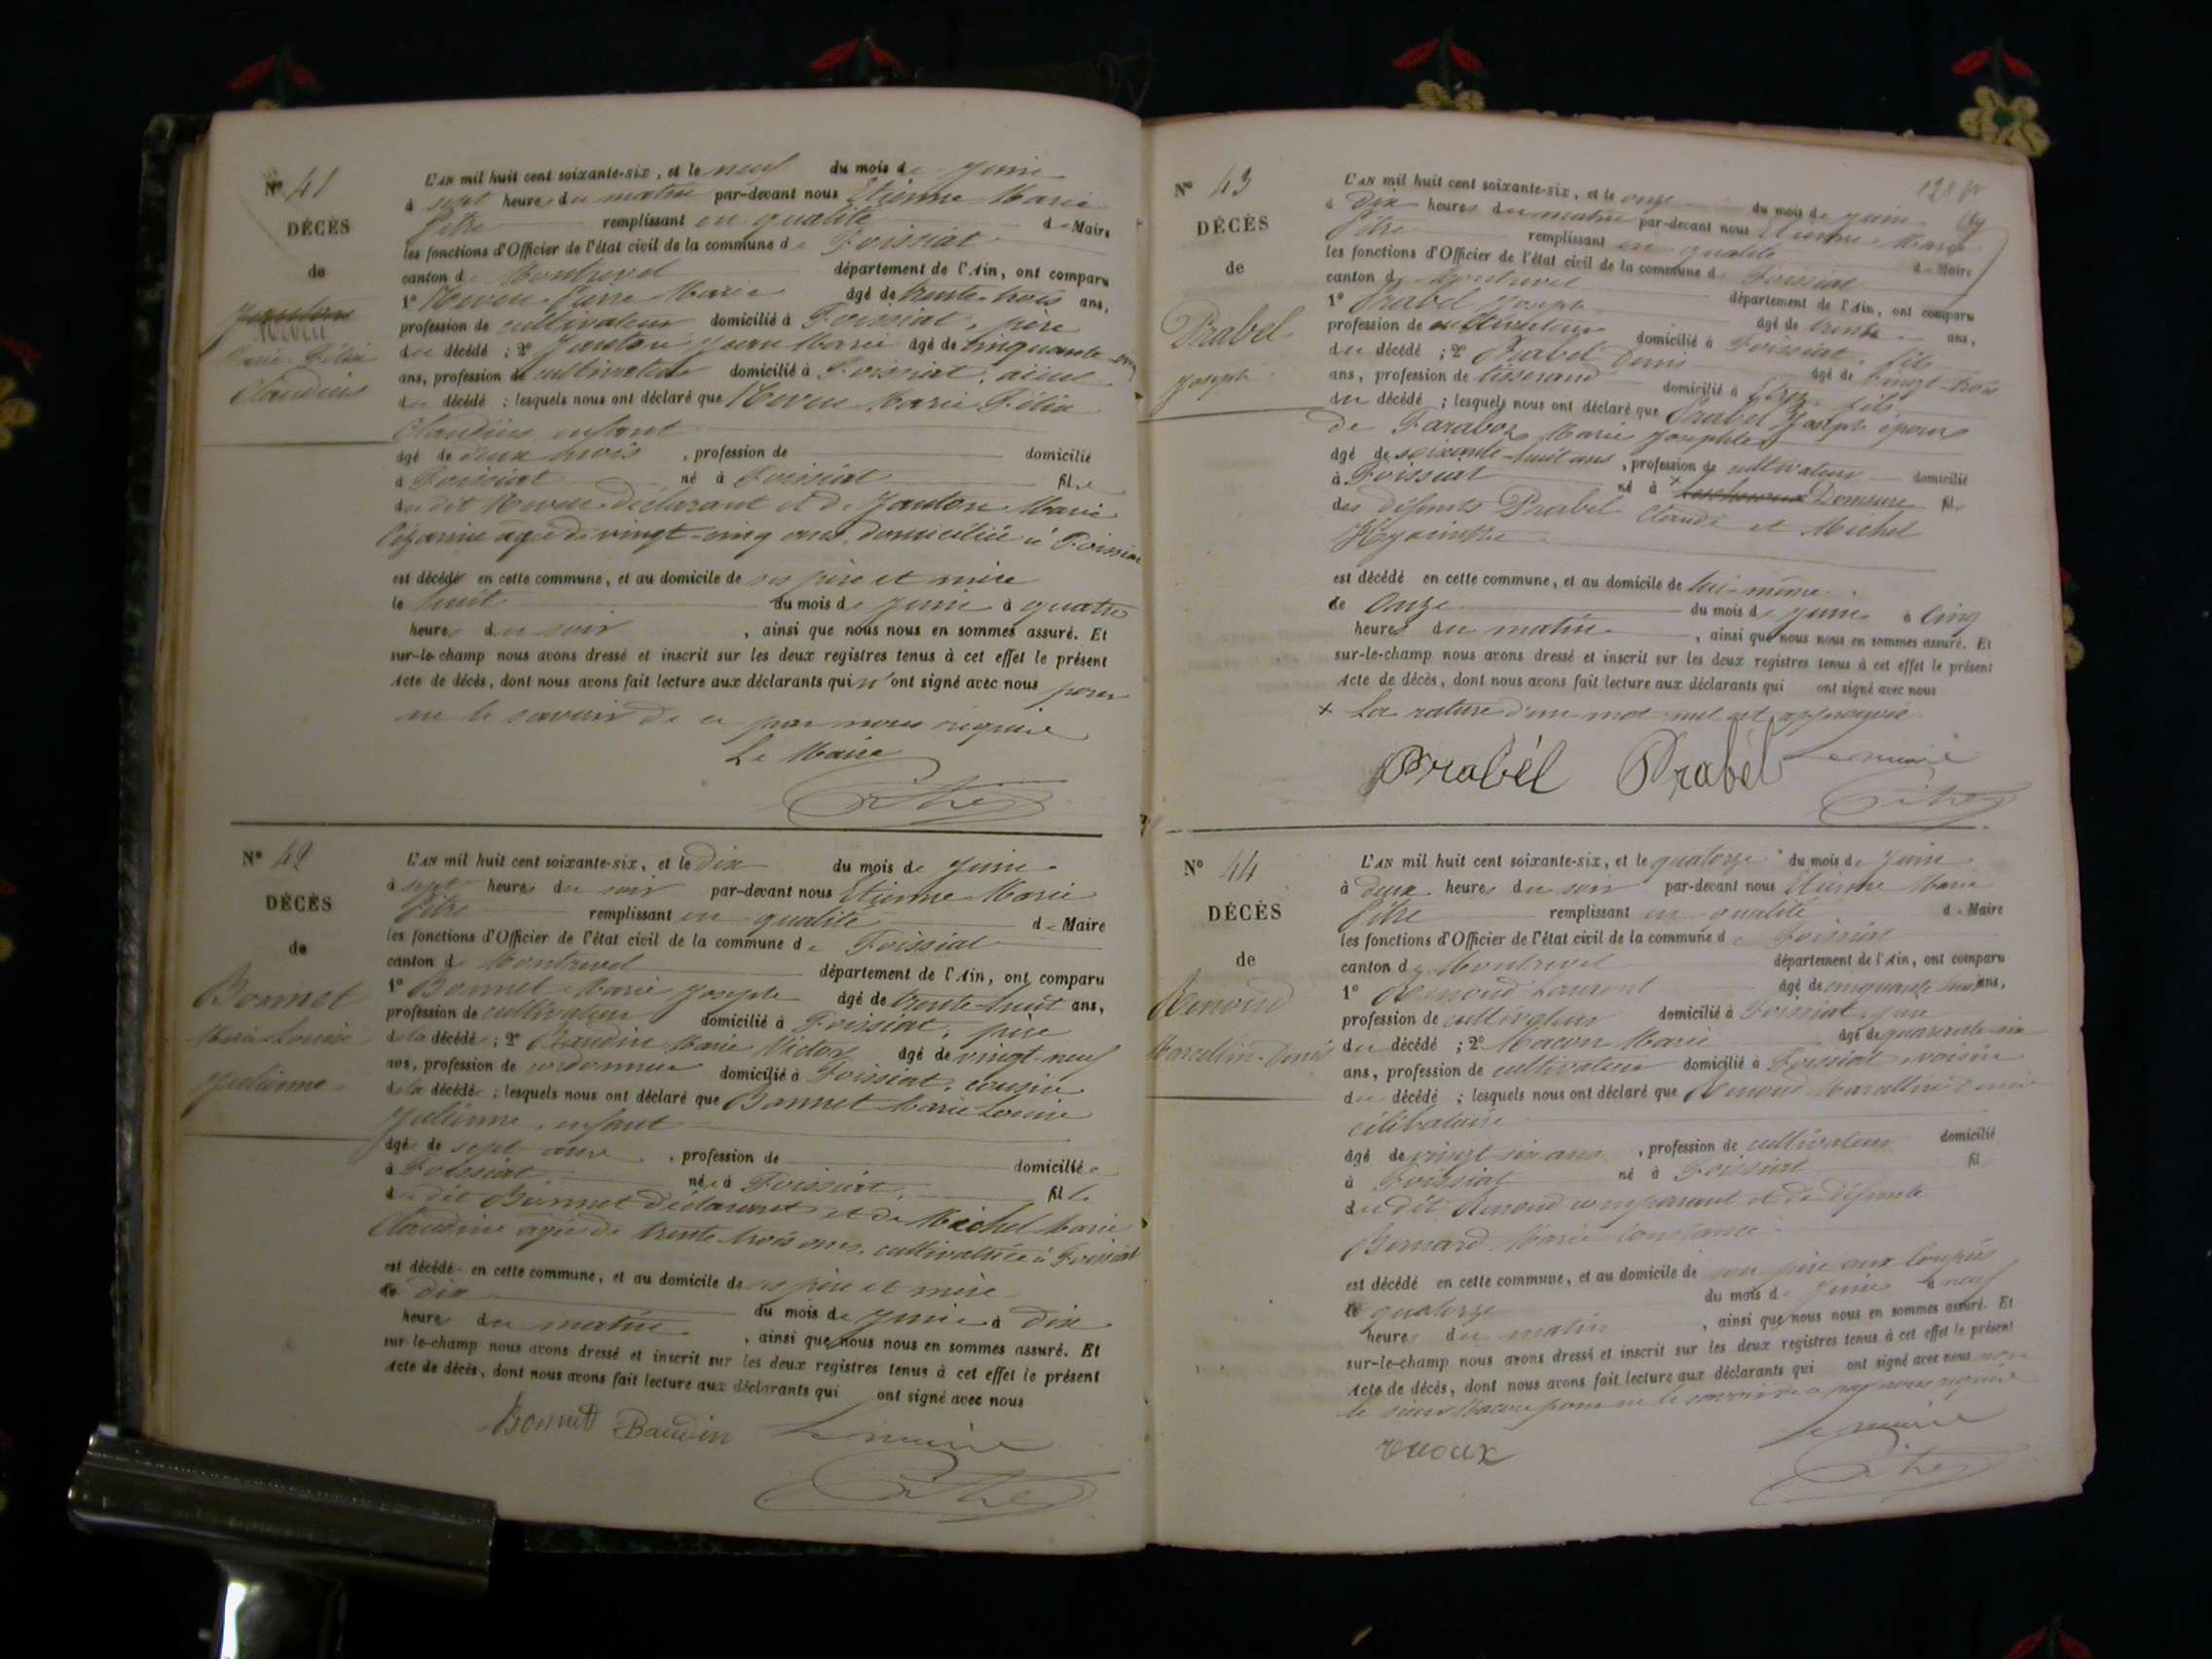 N° 41
DÉCÈS
de
Neveu
Marie Félix
Claudius
L'AN mil huit cent soixante-six, et le neuf du mois de Juin
à sept heures du matin par-devant nous Etienne Marie
Pitre remplissant en qualité de Maire
les fonctions d'Officier de l'état civil de la commune de Foissiat
canton de Montrevel département de l'Ain, ont comparu
1° Neveu Pierre Marie âgé de trente-trois ans,
profession de cultivateur domicilié à Foissiat, père
du décédé ; 2° Janton Jean Marie âgé de cinquante-cinq
ans, profession de cultivateur domicilié à Foissiat, aïeul
du décédé ; lesquels nous ont déclaré que Neveu Marie Félix
Claudius enfant
âgé de deux mois, profession de domicilié
à Foissiat né à Foissiat fils
du dit Neveu déclarant et de Janton Marie
âgée de vingt-cinq ans domiciliée à Foissiat
est décédé en cette commune, et au domicile de ses père et mère
le huit du mois de Juin à quatre
heures du soir, ainsi que nous nous en sommes assuré. Et
sur-le-champ nous avons dressé et inscrit sur les deux registres tenus à cet effet le présent
Acte de décès, dont nous avons fait lecture aux déclarants qui n'ont signé avec nous pour
ne le savoir de ce par nous requis
Le Maire
Pitre
N° 42
DÉCÈS
de
Bonnet
Marie Louise
Julienne
L'AN mil huit cent soixante-six, et le dix du mois de Juin
à sept heures du soir par-devant nous Etienne Marie
Pitre remplissant en qualité de Maire
les fonctions d'Officier de l'état civil de la commune de Foissiat
canton de Montrevel département de l'Ain, ont comparu
1° Bonnet Marie Joseph âgé de trente-huit ans,
profession de cultivateur domicilié à Foissiat, père
de la décédée ; 2° Baudin Marie Victor âgé de vingt-neuf
ans, profession de cordonnier domicilié à Foissiat, cousin
de la décédée ; lesquels nous ont déclaré que Bonnet Marie Louise
Julienne, enfant
âgée de sept ans, profession de domiciliée
à Foissiat née à Foissiat, fille
du dit Bonnet déclarant et de Michel Marie
Claudine âgée de trente trois ans, cultivatrice à Foissiat
est décédée en cette commune, et au domicile de ses père et mère
le dix du mois de Juin à dix
heures du matin, ainsi que nous nous en sommes assuré. Et
sur-le-champ nous avons dressé et inscrit sur les deux registres tenus à cet effet le présent
Acte de décès, dont nous avons fait lecture aux déclarants qui ont signé avec nous
Bonnet Baudin Le maire
Pitre
N° 43
DÉCÈS
de
Prabel
Joseph
L'AN mil huit cent soixante-six, et le onze du mois de Juin
à Dix heures du matin par-devant nous Etienne Marie
Pitre remplissant en qualité de Maire
les fonctions d'Officier de l'état civil de la commune de Foissiat
canton de Montrevel département de l'Ain, ont comparu
1° Prabel Joseph âgé de trente ans,
profession de cultivateur domicilié à Foissiat, fils
du décédé ; 2° Prabel Denis âgé de vingt-trois
ans, profession de tisserand domicilié à fils
du décédé ; lesquels nous ont déclaré que Prabel Joseph époux
de Faraboz Marie Josephte
âgé de soixante-huit ans, profession de cultivateur domicilié
à Foissiat né à + Domsure fils
des défunts Prabel Claude et Michel
Hyacinthe
est décédé en cette commune, et au domicile de lui-même
le Onze du mois de Juin à Cinq
heures du matin, ainsi que nous nous en sommes assuré. Et
sur-le-champ nous avons dressé et inscrit sur les deux registres tenus à cet effet le présent
Acte de décès, dont nous avons fait lecture aux déclarants qui ont signé avec nous
+ La rature d'un mot nul est approuvée
Prabél Prabél Le maire
Pitre
N° 44
DÉCÈS
de
Renoud
Marcellin-Denis
L'AN mil huit cent soixante-six, et le quatorze du mois de Juin
à deux heures du soir par-devant nous Etienne Marie
Pitre remplissant en qualité de Maire
les fonctions d'Officier de l'état civil de la commune de Foissiat
canton de Montrevel département de l'Ain, ont comparu
1° Renoud Laurent âgé de cinquante huit ans,
profession de cultivateur domicilié à Foissiat, père
du décédé ; 2° Macon Marie âgé de quarante-six
ans, profession de cultivateur domicilié à Foissiat, voisin
du décédé ; lesquels nous ont déclaré que Renoud Marcellin Denis
célibataire
âgé de vingt six ans, profession de cultivateur domicilié
à Foissiat né à Foissiat fil
du dit Renoud comparant et de défunte
Bernard Marie Constance
est décédé en cette commune, et au domicile de son père aux
le quatorze du mois de Juin à neuf
heures du matin, ainsi que nous nous en sommes assuré. Et
sur-le-champ nous avons dressé et inscrit sur les deux registres tenus à cet effet le présent
Acte de décès, dont nous avons fait lecture aux déclarants qui ont signé avec nous non
le sieur Macon pour ne le savoir de ce par nous requis
Le maire
Pitre